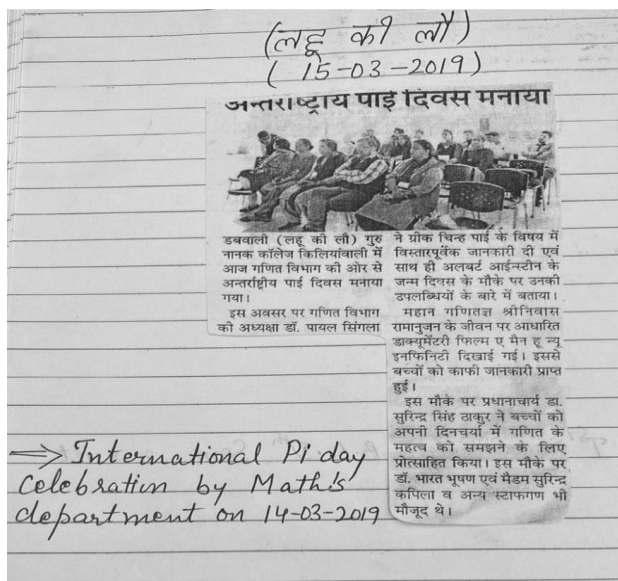 (लहू की लौ)
(15-03-2019)
अन्तर्राष्ट्रीय पाई दिवस मनाया
डबवाली (लहू की लौ) गुरु
नानक कॉलेज किलियांवाली में
आज गणित विभाग की ओर से
अन्तर्राष्ट्रीय पाई दिवस मनाया
गया।
इस अवसर पर गणित विभाग
की अध्यक्षा डॉ. पायल सिंगला
ने ग्रीक चिन्ह पाई के विषय में
विस्तारपूर्वक जानकारी दी एवं
साथ ही अलबर्ट आईन्स्टीन के
जन्म दिवस के मौके पर उनकी
उपलब्धियों के बारे में बताया।
महान गणितज्ञ श्रीनिवास
रामानुजन के जीवन पर आधारित
डाक्यूमेंटरी फिल्म ए मैन हू न्यू
इनफिनिटी दिखाई गई। इससे
बच्चों को काफी जानकारी प्राप्त
हुई।
इस मौके पर प्रधानाचार्य डा.
सुरिन्द्र सिंह ठाकुर ने बच्चों को
अपनी दिनचर्या में गणित के
महत्व को समझने के लिए
प्रोत्साहित किया। इस मौके पर
डॉ. भारत भूषण एवं मैडम सुरिन्द्र
कपिला व अन्य स्टाफगण भी
मौजूद थे।
⇒ International Pi day
celebration by Math's
department on 14-03-2019